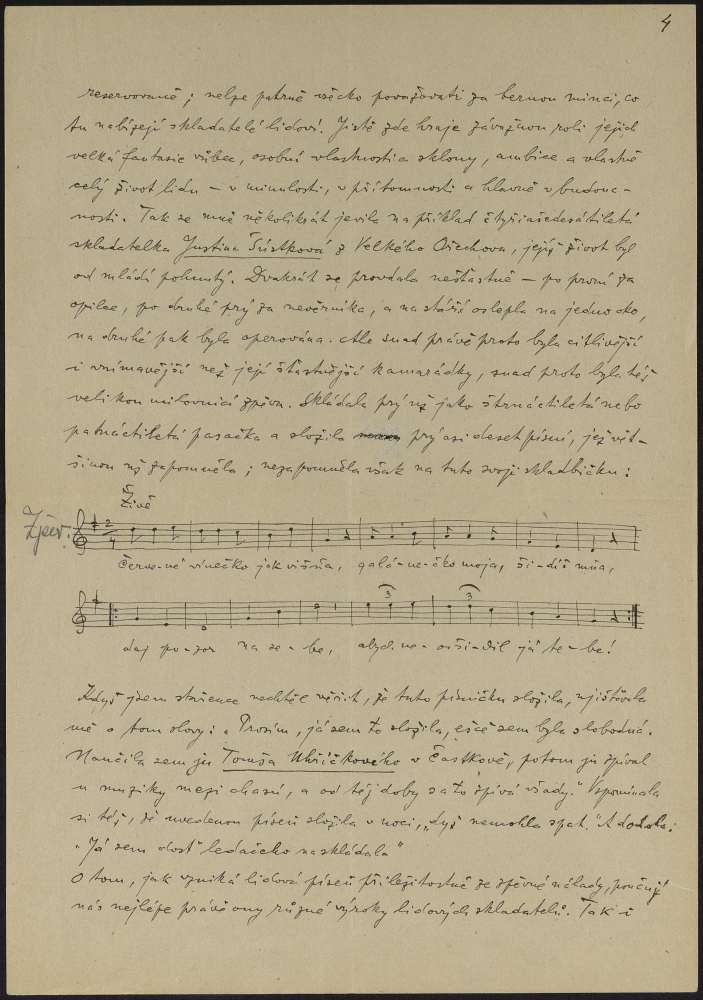 4
reservovaně; nelze patrně všecko považovati za bernou minci, co
tu nabízejí skladatelé lidoví. Jistě zde hraje závažnou roli jejich
velká fantasie vůbec, osobní vlastnosti a sklony, ambice a vlastně
celý život lidu – v minulosti, v přítomnosti a hlavně v budouc-
nosti. Tak se mně několikrát jevila na příklad čtyřiašedesátiletá
skladatelka Justina Šústková z Velkého Ořechova, jejíž život byl
od mládí pohnutý. Dvakrát se provdala nešťastně – po první za
opilce, po druhé prý za nevěrníka, a na stáří oslepla na jedno oko,
na druhé pak byla operována. Ale snad právě proto byla citlivější
i vnímavější než její šťastnější kamarádky, snad proto byla též
velikou milovnicí zpěvu. Skládala prý už jako štrnáctiletá nebo
patnáctiletá pasačka a složila prý asi deset písní, jež vět-
šinou už zapomněla; nezapomněla však na tuto svoji skladbičku:
Živě
Zpěv.
2
4
Červe-né vínečko jak višňa, galá-ne-čko moja, ši-díš mňa,
3 3
daj po-zor na se-be, abych ne-oši-dil já te-be!
Když jsem stařence nechtěl věřit, že tuto písničku složila, ujišťovala
mě o tom slovy: „Prosím, já sem to složila, eščě sem byla slobodná.
Naučila sem ju Tomša Uhříčkového v Částkově, potom ju zpíval
u muziky mezi chasú, a od téj doby sa to zpívá všady." Vzpomínala
si též, že uvedenou píseň složila v noci, „dyž nemohla spat." A dodala:
„Já sem dosť ledačeho naskládala"
O tom, jak vzniká lidová píseň příležitostně ze zpěvné nálady, poučují
nás nejlépe právě ony různé výroky lidových skladatelů. Tak i